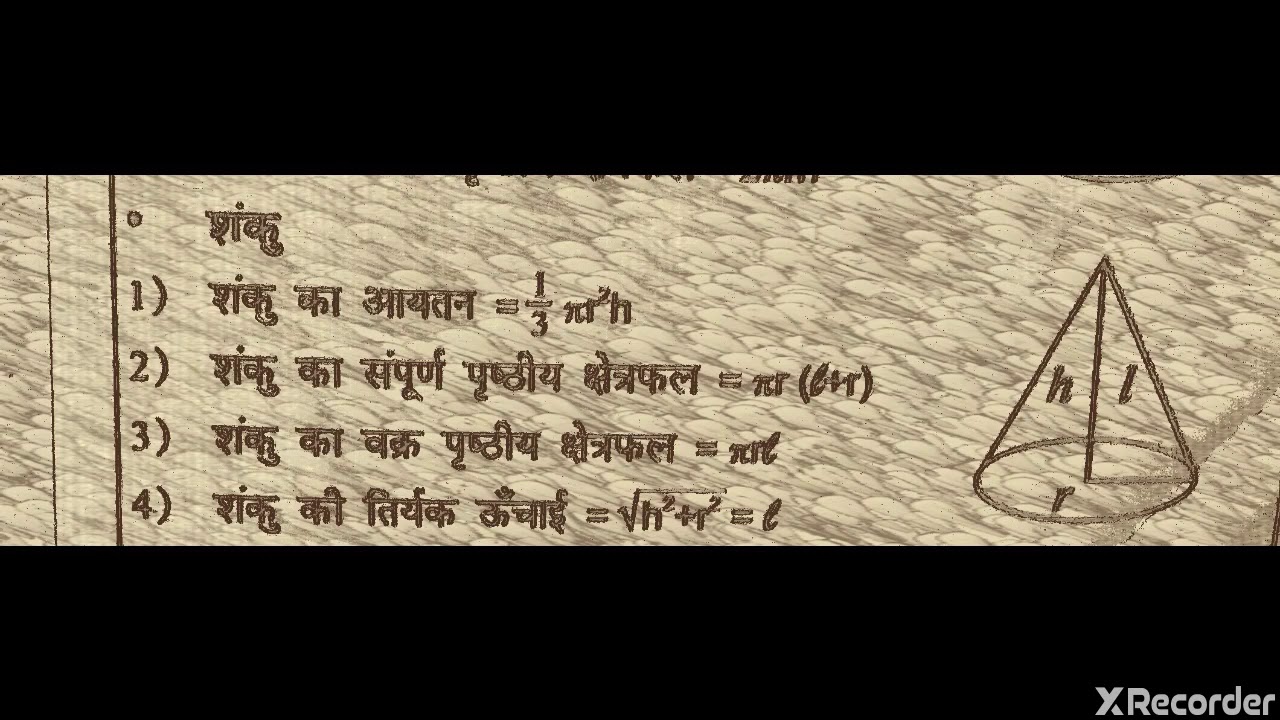 शंकु
1) शंकु का आयतन = 1/3 πr²h
2) शंकु का संपूर्ण पृष्ठीय क्षेत्रफल = πr (ℓ+r)
3) शंकु का वक्र पृष्ठीय क्षेत्रफल = πrℓ
4) शंकु की तिर्यक ऊँचाई = √h²+r² = ℓ
h l
r
XRecorder